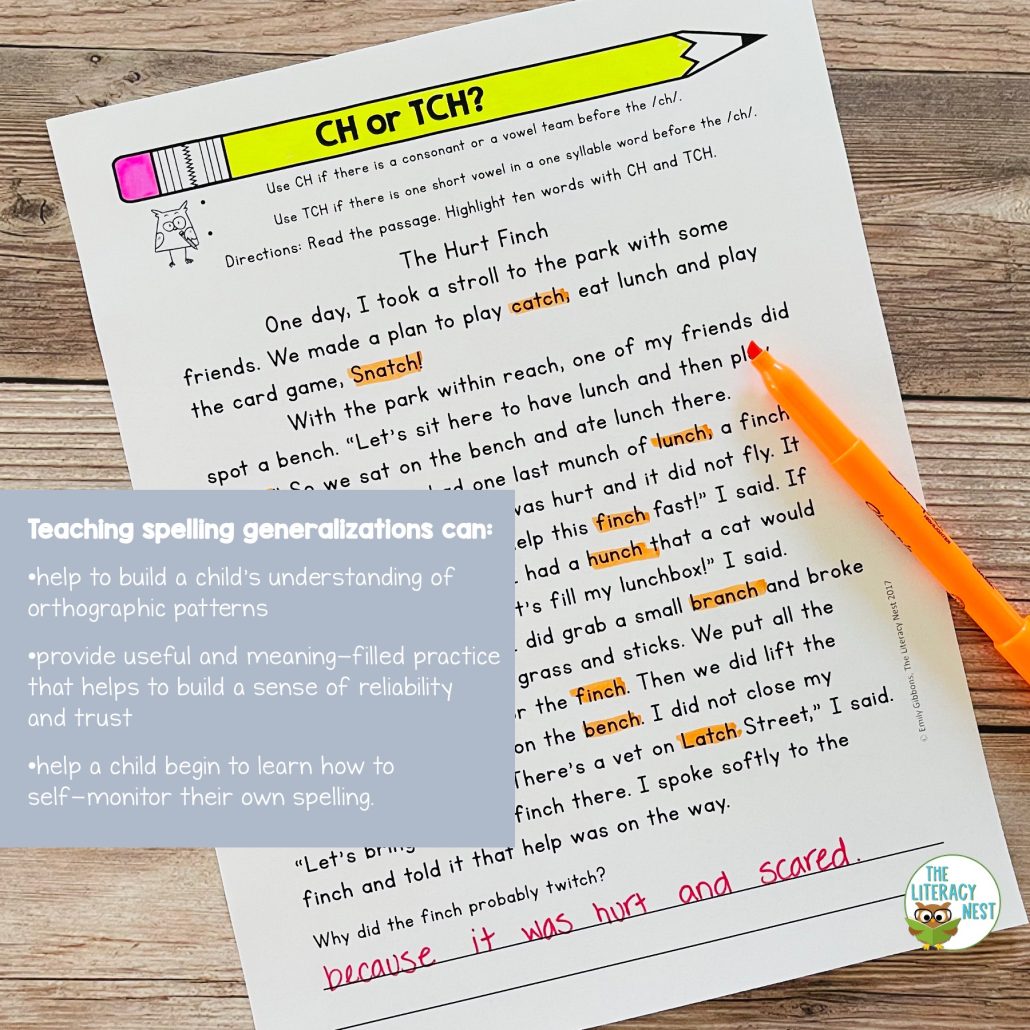 CH or TCH?
Use CH if there is a consonant or a vowel team before the /ch/.
Use TCH if there is one short vowel in a one syllable word before the /ch/.
Directions: Read the passage. Highlight ten words with CH and TCH.
The Hurt Finch
One day, I took a stroll to the park with some
friends. We made a plan to play catch, eat lunch and play
the card game, Snatch!
With the park within reach, one of my friends did
spot a bench. "Let's sit here to have lunch and then play
So we sat on the bench and ate lunch there.
one last munch of lunch, a finch
was hurt and it did not fly. It
help this finch fast!" I said. If
had a hunch that a cat would
fill my lunchbox!" I said.
did grab a small branch and broke
grass and sticks. We put all the
the finch. Then we did lift the
on the bench. I did not close my
There's a vet on Latch Street," I said.
"Let's bring finch there. I spoke softly to the
finch and told it that help was on the way.
Why did the finch probably twitch?
because it was hurt and scared.
© Emily Gibbons, The Literacy Nest 2017
Teaching spelling generalizations can:
•help to build a child's understanding of
orthographic patterns
•provide useful and meaning-filled practice
that helps to build a sense of reliability
and trust
•help a child begin to learn how to
self-monitor their own spelling.
THE
LITERACY
NEST